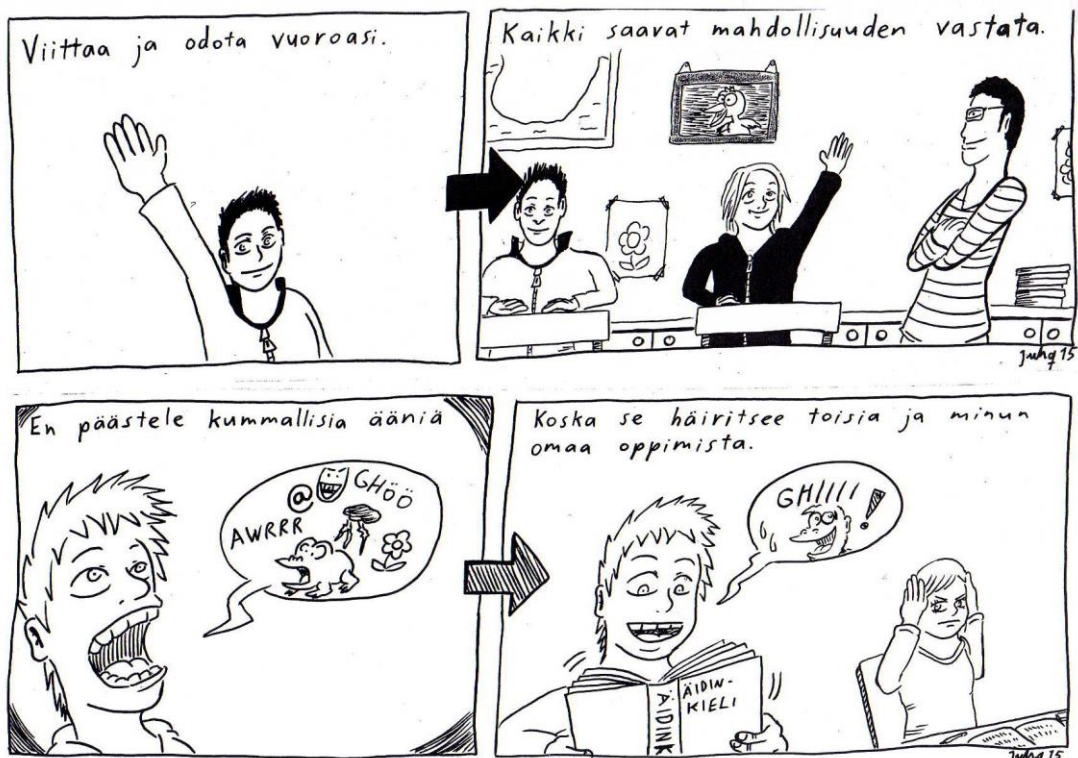 Viittaa ja odota vuoroasi.
Kaikki saavat mahdollisuuden vastata.
juha 15
En päästele kummallisia ääniä
@ GHÖÖ
AWRRR
Koska se häiritsee toisia ja minun
omaa oppimista.
GHIIII !
ÄIDINK
ÄIDIN-
KIELI
Juha 15